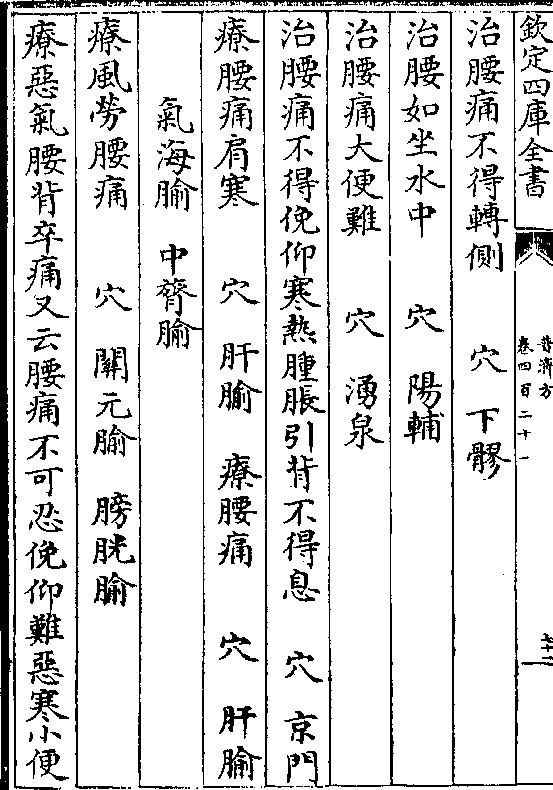 欽定四庫全書
普濟方
卷四百二十一
治腰痛不得轉側　穴　下髎
治腰如坐水中　穴　陽輔
治腰痛大便難　穴　湧泉
治腰痛不得俛仰寒熱腫脹引背不得息　穴　京門
療腰痛肩寒　穴　肝腧　療腰痛　穴　肝腧
氣海腧　中膂腧
療風勞腰痛　穴　關元腧　膀胱腧
療惡氣腰背卒痛又云腰痛不可忍俛仰難惡寒小便